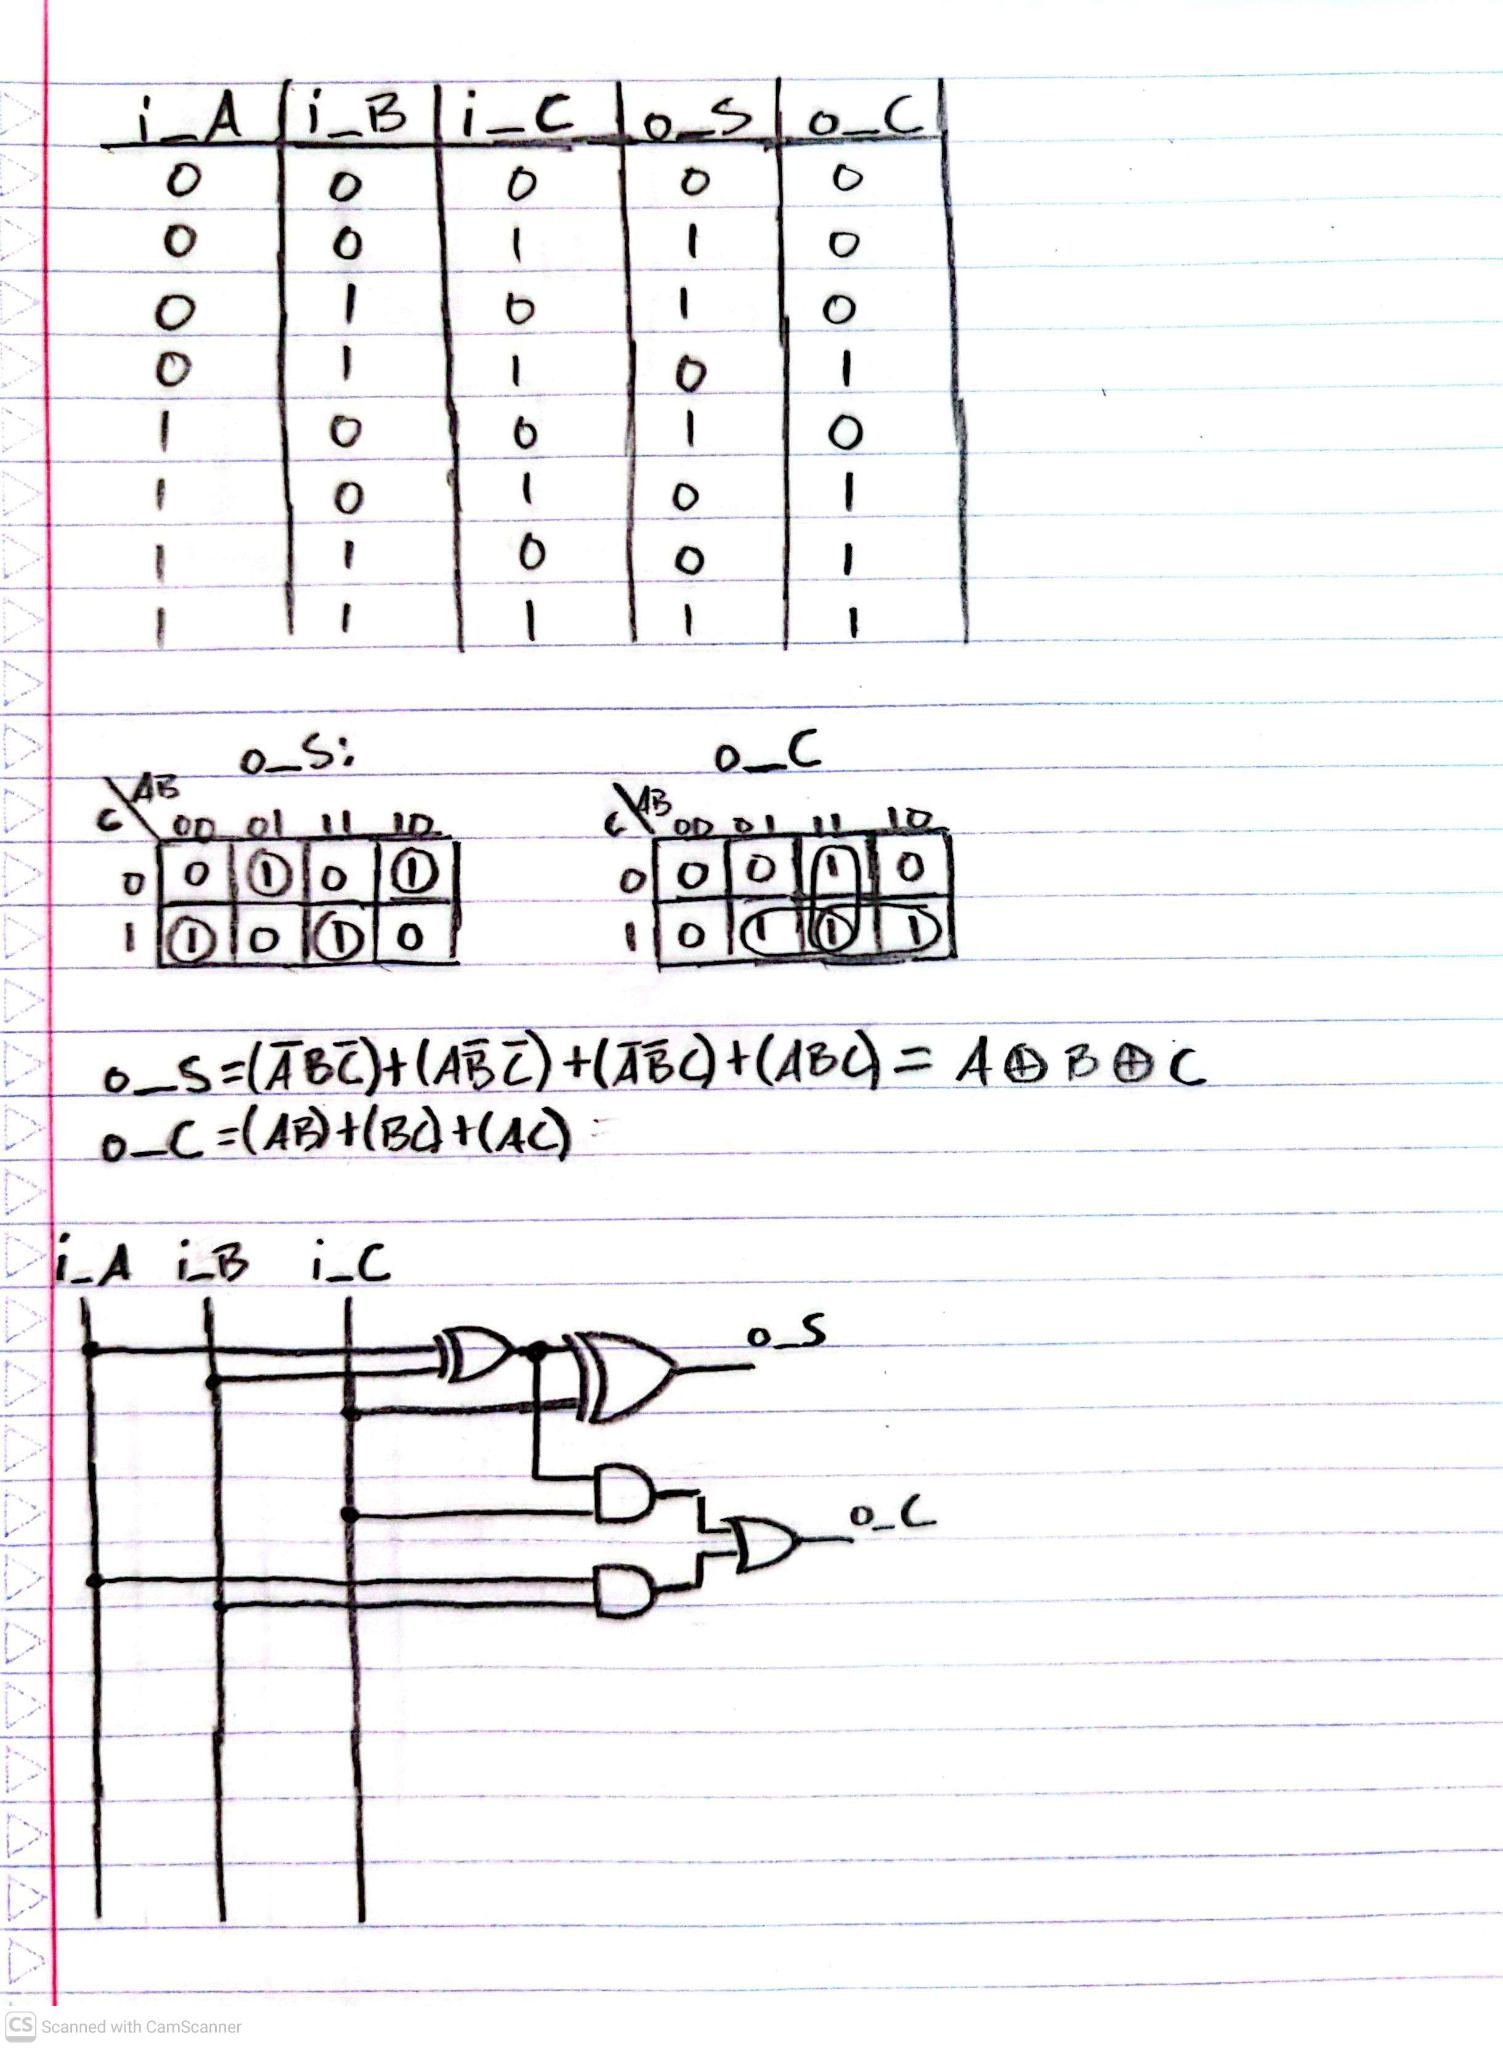 i_A i_B i_C o_S o_C
0 0 0 0 0
0 0 1 1 0
0 1 0 1 0
0 1 1 0 1
1 0 0 1 0
1 0 1 0 1
1 1 0 0 1
1 1 1 1 1
o_S: o_C
C\AB 00 01 11 10 C\AB 00 01 11 10
0 0 1 0 1 0 0 0 1 0
1 1 0 1 0 1 0 1 1 1
o_S=(A̅BC̅)+(AB̅C̅)+(A̅B̅C)+(ABC)= A⊕B⊕C
o_C=(AB)+(BC)+(AC) =
i_A i_B i_C
o_S
o_C
CS Scanned with CamScanner